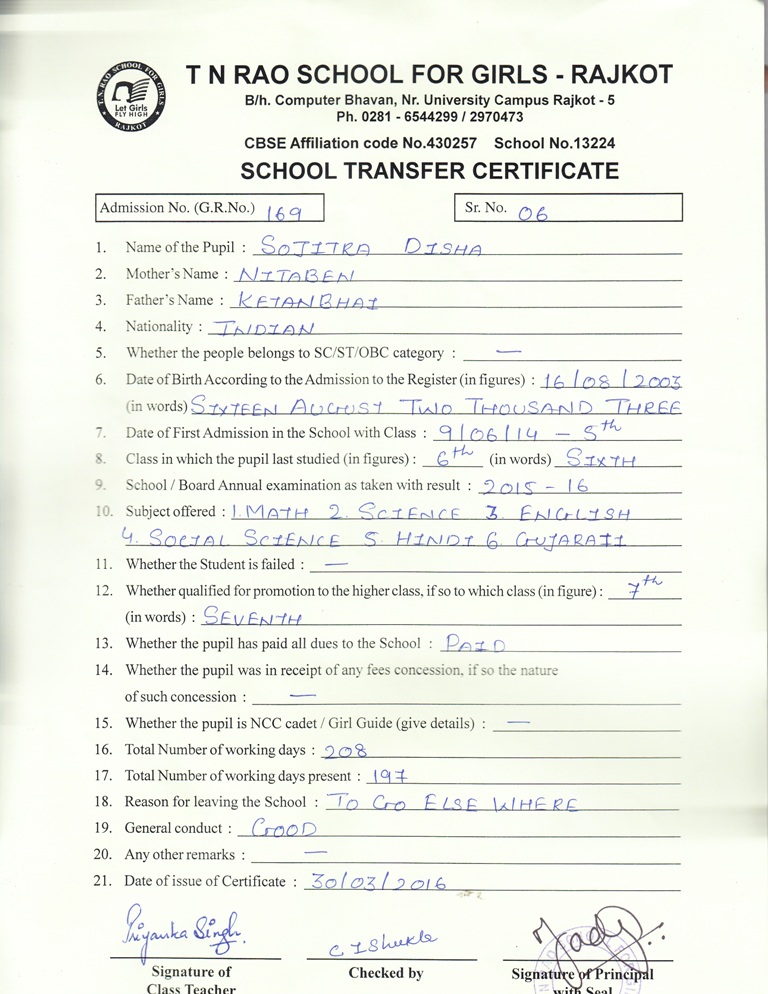 T. N. RAO SCHOOL FOR GIRLS
Let Girls
FLY HIGH
RAJKOT
T N RAO SCHOOL FOR GIRLS - RAJKOT
B/h. Computer Bhavan, Nr. University Campus Rajkot - 5
Ph. 0281 - 6544299 / 2970473
CBSE Affiliation code No.430257 School No.13224
SCHOOL TRANSFER CERTIFICATE
Admission No. (G.R.No.) 169 Sr. No. 06
1. Name of the Pupil : SOJITRA DISHA
2. Mother's Name : NITABEN
3. Father's Name : KETANBHAI
4. Nationality : INDIAN
5. Whether the people belongs to SC/ST/OBC category : —
6. Date of Birth According to the Admission to the Register (in figures) : 16/08/2003
(in words) SIXTEEN AUGUST TWO THOUSAND THREE
7. Date of First Admission in the School with Class : 9/06/14 - 5th
8. Class in which the pupil last studied (in figures) : 6th (in words) SIXTH
9. School / Board Annual examination as taken with result : 2015 - 16
10. Subject offered : 1. MATH 2. SCIENCE 3. ENGLISH
4. SOCIAL SCIENCE 5. HINDI 6. GUJARATI
11. Whether the Student is failed : —
12. Whether qualified for promotion to the higher class, if so to which class (in figure) : 7th
(in words) : SEVENTH
13. Whether the pupil has paid all dues to the School : PAID
14. Whether the pupil was in receipt of any fees concession, if so the nature
of such concession : —
15. Whether the pupil is NCC cadet / Girl Guide (give details) : —
16. Total Number of working days : 208
17. Total Number of working days present : 197
18. Reason for leaving the School : TO GO ELSE WHERE
19. General conduct : GOOD
20. Any other remarks : —
21. Date of issue of Certificate : 30/03/2016
Priyanka Singh C I Shukla
Signature of Checked by Signature of Principal
Class Teacher with Seal